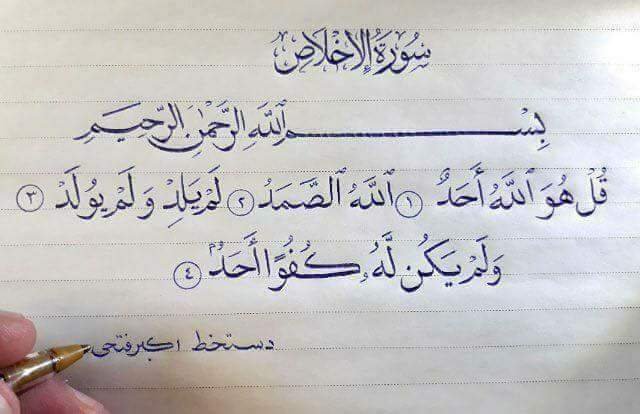 سُورَةُ الإِخْلَاصِ
بِسْــــــــــــمِ اللَّهِ الرَّحْمَٰنِ الرَّحِيمِ
قُلْ هُوَ ٱللَّهُ أَحَدٌ ١ ٱللَّهُ ٱلصَّمَدُ ٢ لَمْ يَلِدْ وَلَمْ يُولَدْ ٣
وَلَمْ يَكُن لَّهُۥ كُفُوًا أَحَدٌۢ ٤
دستخط اکبر فتحی